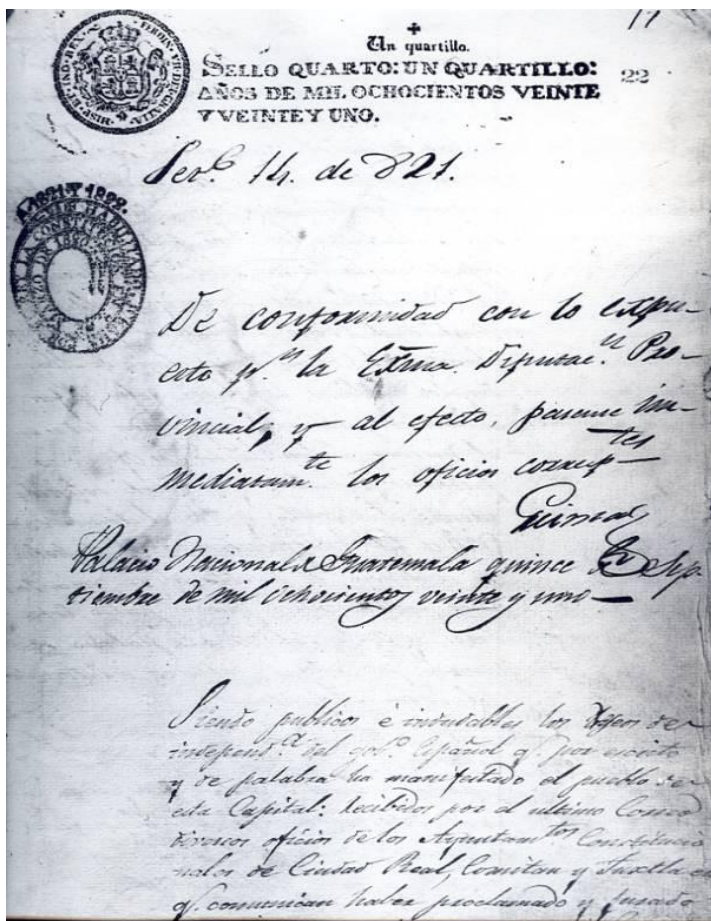 17
Un quartillo.
SELLO QUARTO: UN QUARTILLO:
AÑOS DE MIL OCHOCIENTOS VEINTE
Y VEINTE Y UNO.
22
14. de 821.
A 1821 Y 1822.
De conformidad con lo expu-
esto pr. la Exma. Diputacn. Pro-
vincial, y al efecto, pasense in-
mediatamte. los oficios corresptes
Palacio Nacional de Guatemala quince de Sep-
tiembre de mil ochocientos veinte y uno
Siendo publicos è indudables los deseos de
independa. del gobo. Español qe. por escrito
y de palabra ha manifestado el pueblo de
esta Capital: Recibidos por el ultimo Correo
diversos oficios de los Ayuntamtos. Constitucio
nales de Ciudad Real, Comitan y Tuxtla en
qe. comunican haber proclamado y jurado